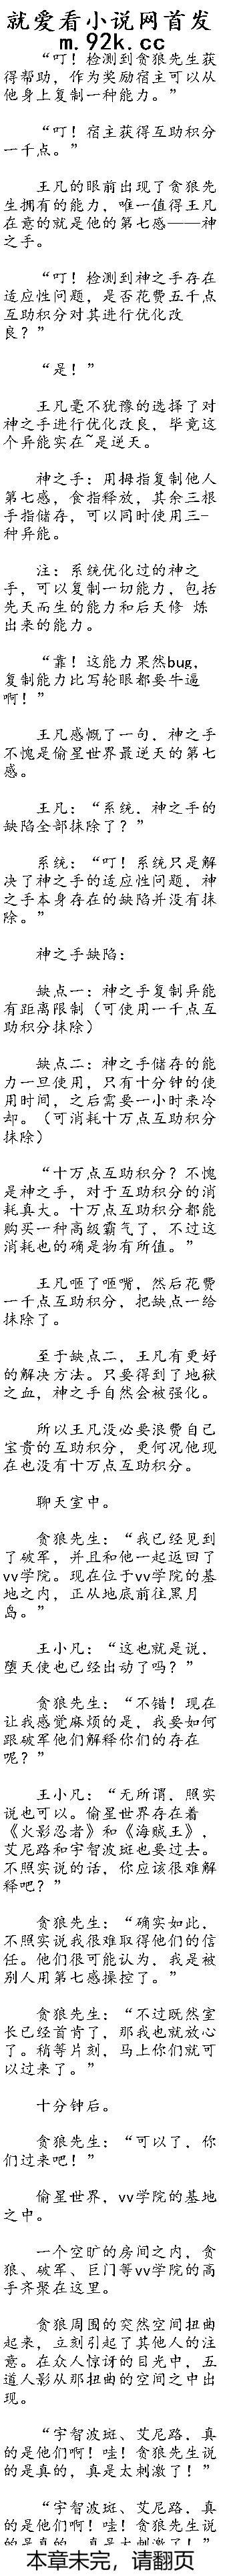 就爱看小说网首发
m.92k.cc
“叮！检测到贪狼先生获
得帮助，作为奖励宿主可以从
他身上复制一种能力。”
“叮！宿主获得互助积分
一千点。”
王凡的眼前出现了贪狼先
生拥有的能力，唯一值得王凡
在意的就是他的第七感——神
之手。
“叮！检测到神之手存在
适应性问题，是否花费五千点
互助积分对其进行优化改
良？”
“是！”
王凡毫不犹豫的选择了对
神之手进行优化改良，毕竟这
个异能实在~是逆天。
神之手：用拇指复制他人
第七感，食指释放，其余三根
手指储存，可以同时使用三-
种异能。
注：系统优化过的神之
手，可以复制一切能力，包括
先天而生的能力和后天修 炼
出来的能力。
“靠！这能力果然bug，
复制能力比写轮眼都要牛逼
啊！”
王凡感慨了一句，神之手
不愧是偷星世界最逆天的第七
感。
王凡：“系统，神之手的
缺陷全部抹除了？”
系统：“叮！系统只是解
决了神之手的适应性问题，神
之手本身存在的缺陷并没有抹
除。”
神之手缺陷：
缺点一：神之手复制异能
有距离限制（可使用一千点互
助积分抹除）
缺点二：神之手储存的能
力一旦使用，只有十分钟的使
用时间，之后需要一小时来冷
却。（可消耗十万点互助积分
抹除）
“十万点互助积分？不愧
是神之手，对于互助积分的消
耗真大。十万点互助积分都能
购买一种高级霸气了，不过这
消耗也的确是物有所值。”
王凡咂了咂嘴，然后花费
一千点互助积分，把缺点一给
抹除了。
至于缺点二，王凡有更好
的解决方法。只要得到了地狱
之血，神之手自然会被强化。
所以王凡没必要浪费自己
宝贵的互助积分，更何况他现
在也没有十万点互助积分。
聊天室中。
贪狼先生：“我已经见到
了破军，并且和他一起返回了
vv学院。现在位于vv学院的基
地之内，正从地底前往黑月
岛。”
王小凡：“这也就是说，
堕天使也已经出动了吗？”
贪狼先生：“不错！现在
让我感觉麻烦的是，我要如何
跟破军他们解释你们的存在
呢？”
王小凡：“无所谓，照实
说也可以。偷星世界存在着
《火影忍者》和《海贼王》，
艾尼路和宇智波斑也要过去。
不照实说的话，你应该很难解
释吧？”
贪狼先生：“确实如此，
不照实说我很难取得他们的信
任。他们很可能认为，我是被
别人用第七感操控了。”
贪狼先生：“不过既然室
长已经首肯了，那我也就放心
了。稍等片刻，马上你们就可
以过来了。”
十分钟后。
贪狼先生：“可以了，你
们过来吧！”
偷星世界，vv学院的基地
之中。
一个空旷的房间之内，贪
狼、破军、巨门等vv学院的高
手齐聚在这里。
贪狼周围的突然空间扭曲
起来，立刻引起了其他人的注
意。在众人惊讶的目光中，五
道人影从那扭曲的空间之中出
现。
“宇智波斑、艾尼路，真
的是他们啊！哇！贪狼先生说
的是真的，真是太刺激了！”
“宇智波斑、艾尼路，真
的是他们啊！哇！贪狼先生说
的是真的，真是太刺激了！”
本章未完，请翻页